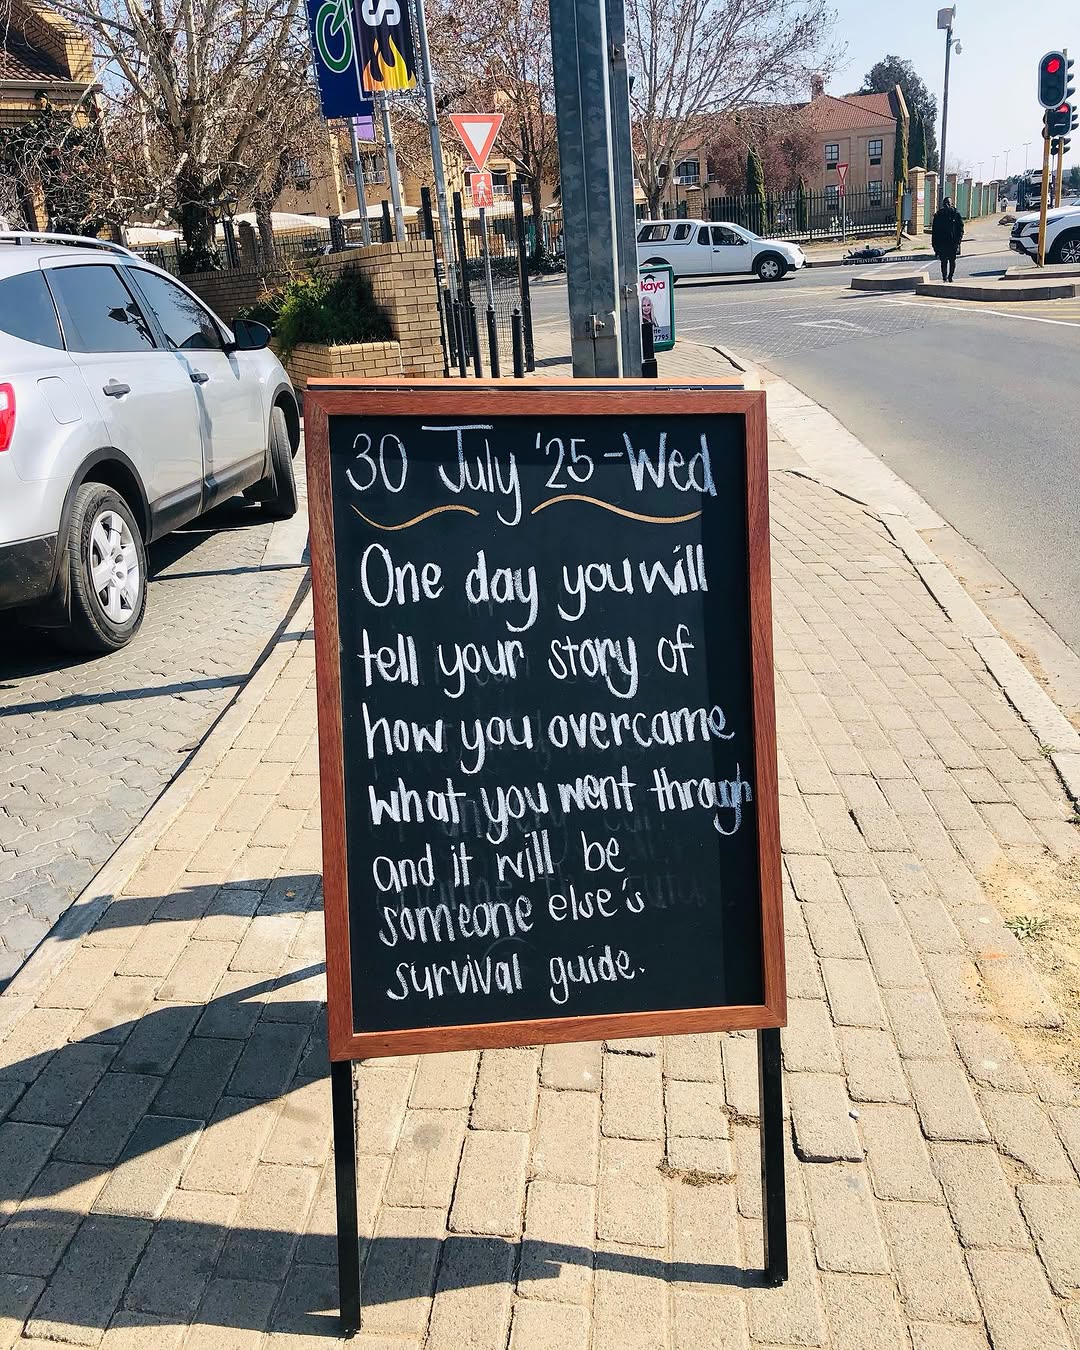 30 July '25 - Wed
One day you will
tell your story of
how you overcame
what you went through
and it will be
someone else's
survival guide.
kaya
7795